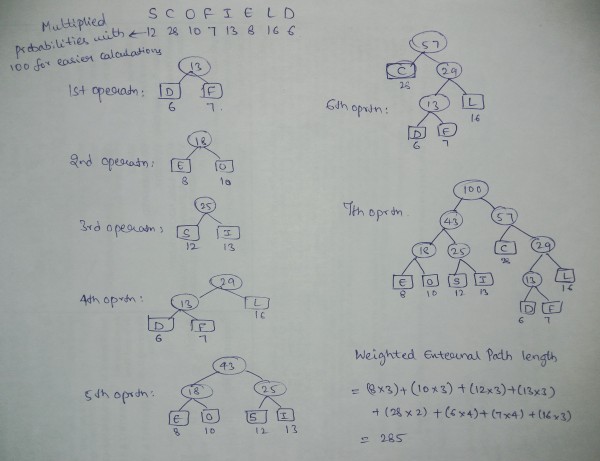 S C O F I E L D
Multiplied probabilities with 100 for easier calculations ← 12 28 10 7 13 8 16 6
1st operatn:
13
D F
6 7
2nd operatn:
18
E O
8 10
3rd operatn:
25
S I
12 13
4th oprtn:
29
13 L
16
D F
6 7
5th oprtn:
43
18 25
E O S I
8 10 12 13
6th oprtn:
57
C 29
28
13 L
16
D F
6 7
7th oprtn
100
43 57
18 25 C 29
28
E O S I 13 L
8 10 12 13 16
D F
6 7
Weighted External Path length
= (8x3)+(10x3)+(12x3)+(13x3)
+(28x2)+(6x4)+(7x4)+(16x3)
= 285